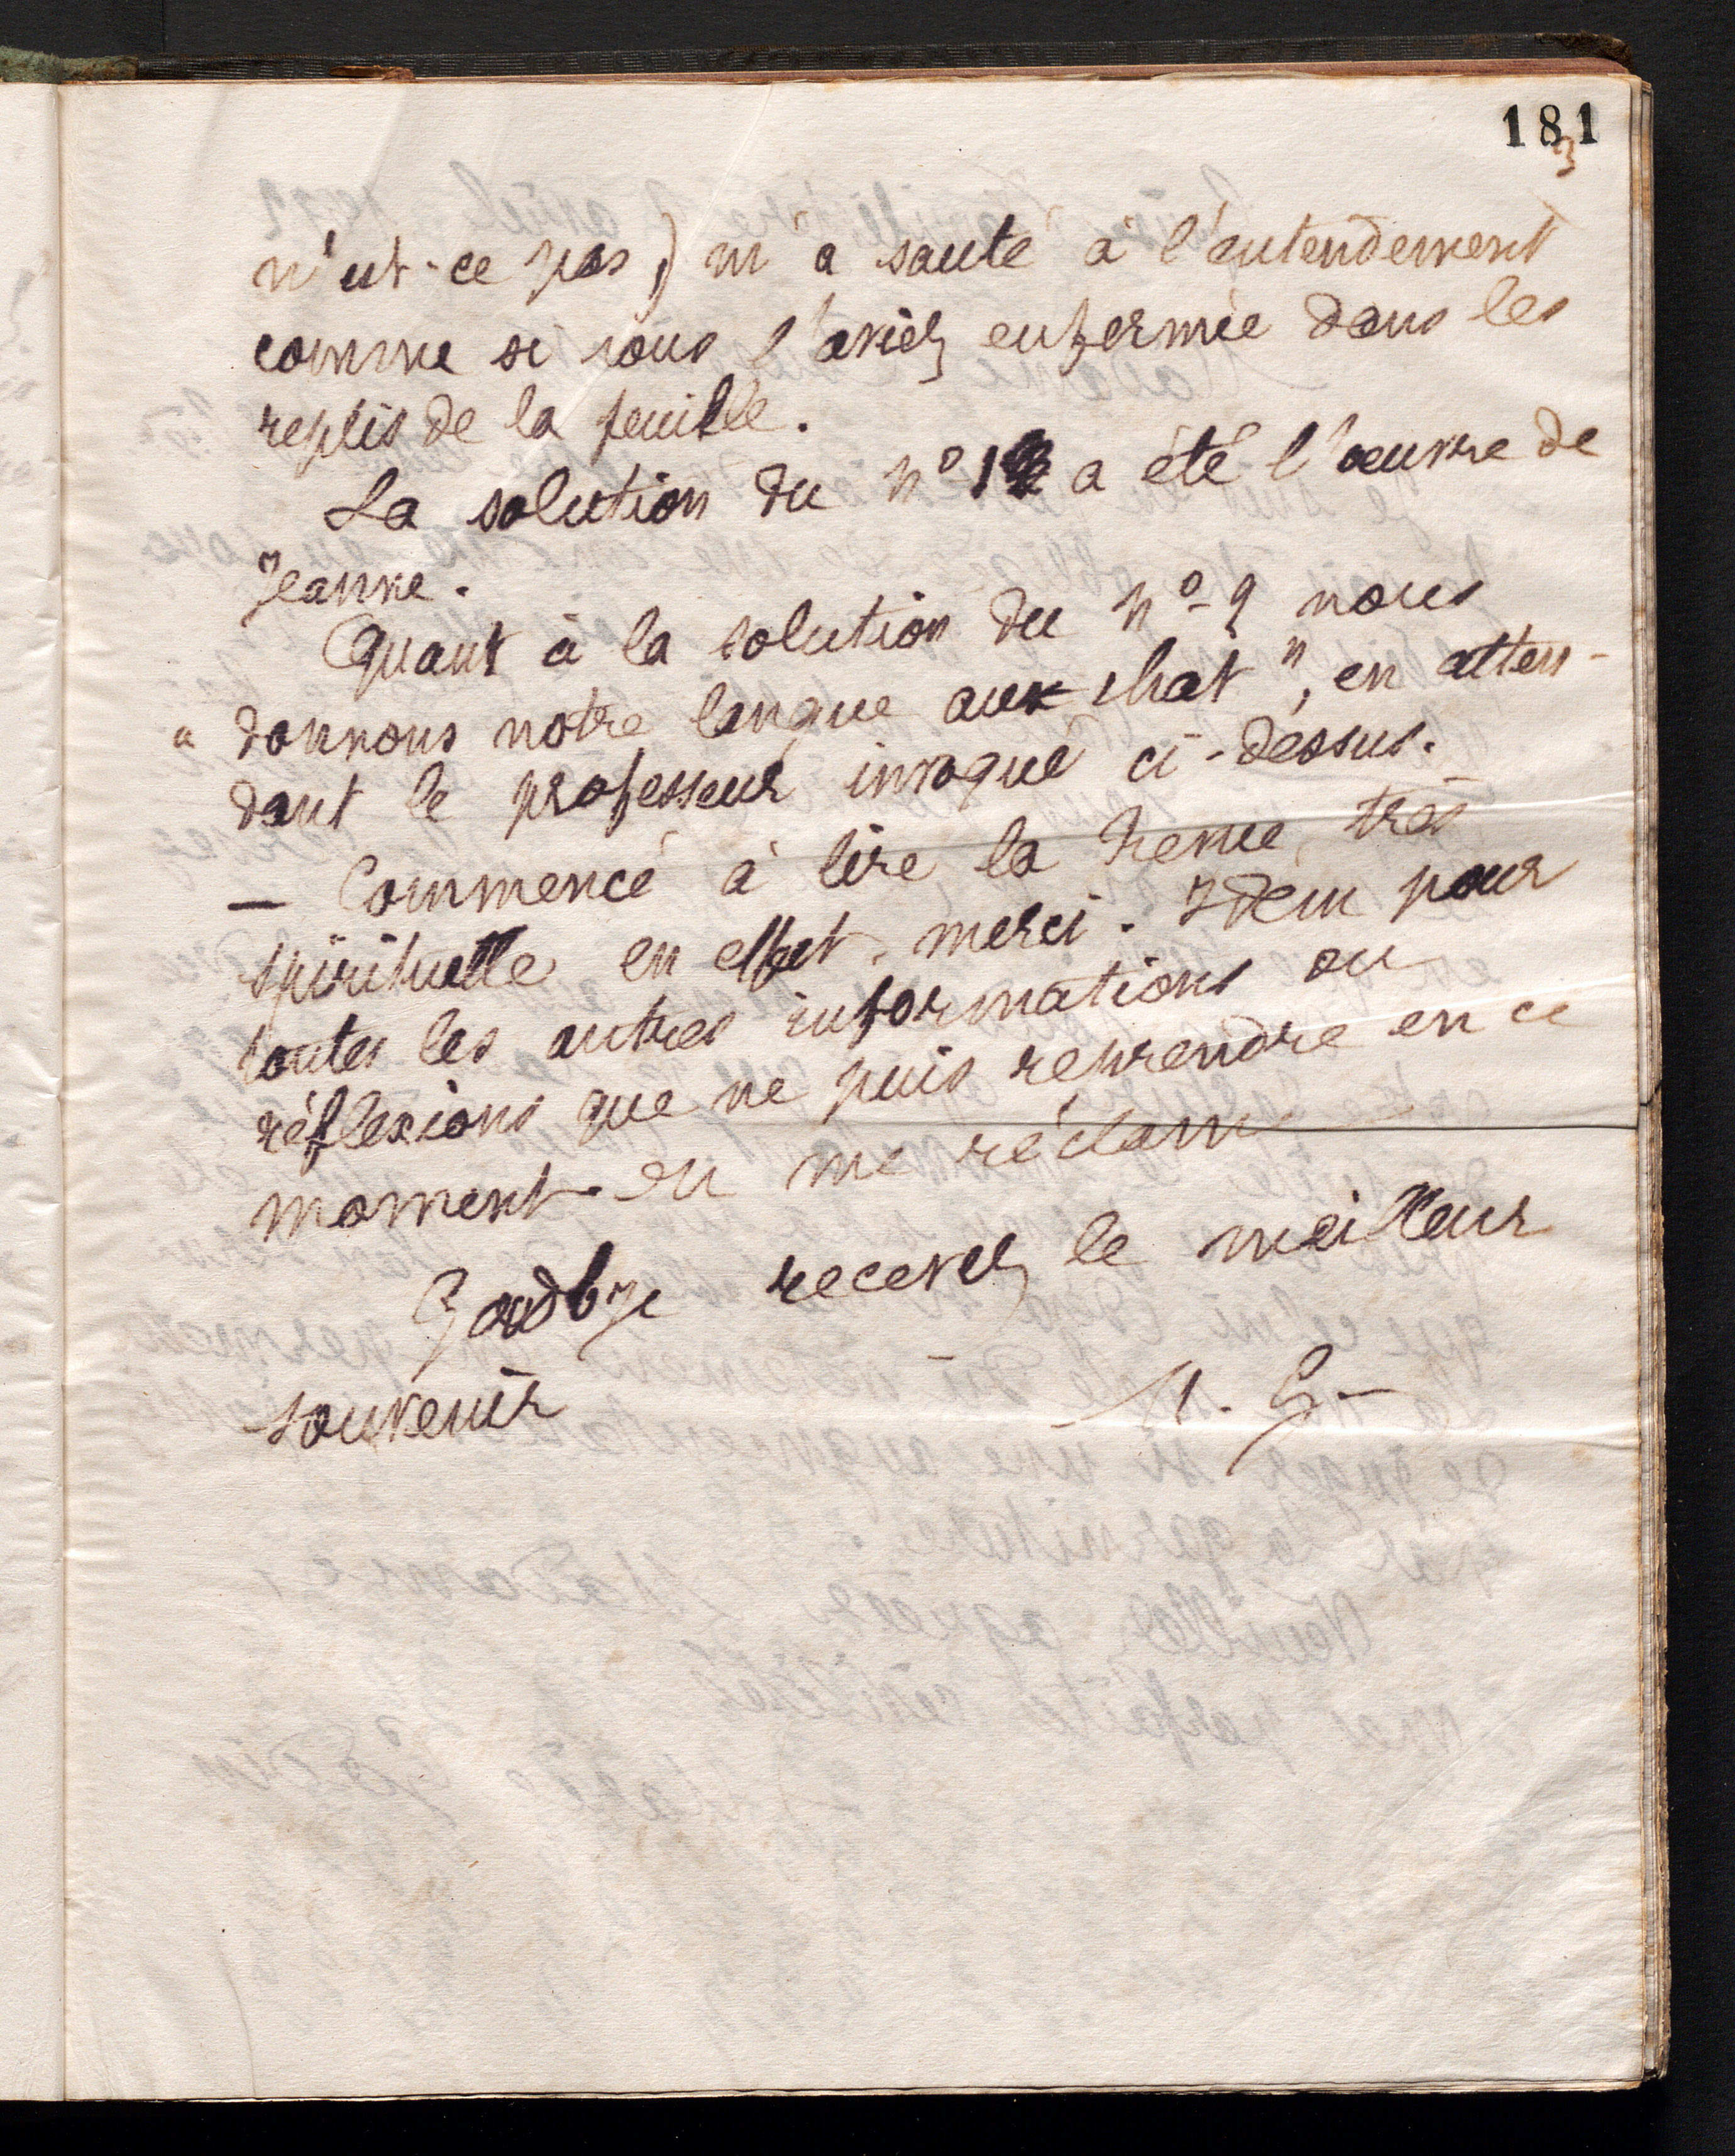 181
3
n'est-ce pas) m'a sauté à l'entendement
comme si vous l'aviez enfermée dans les
replis de la feuille.
La solution du n° 1 a été l'œuvre de
Jeanne.
Quant à la solution du n° 9 nous
" donnons notre langue aux chat", en atten-
dant le professeur invoqué ci-dessus.
— Commencé à lire la Revue, très
spirituelle en effet, merci. Idem pour
toutes les autres informations ou
réflexions que ne puis reprendre en ce
moment. On me réclame
Goodbye recevez le meilleur
souvenir
M. G.-